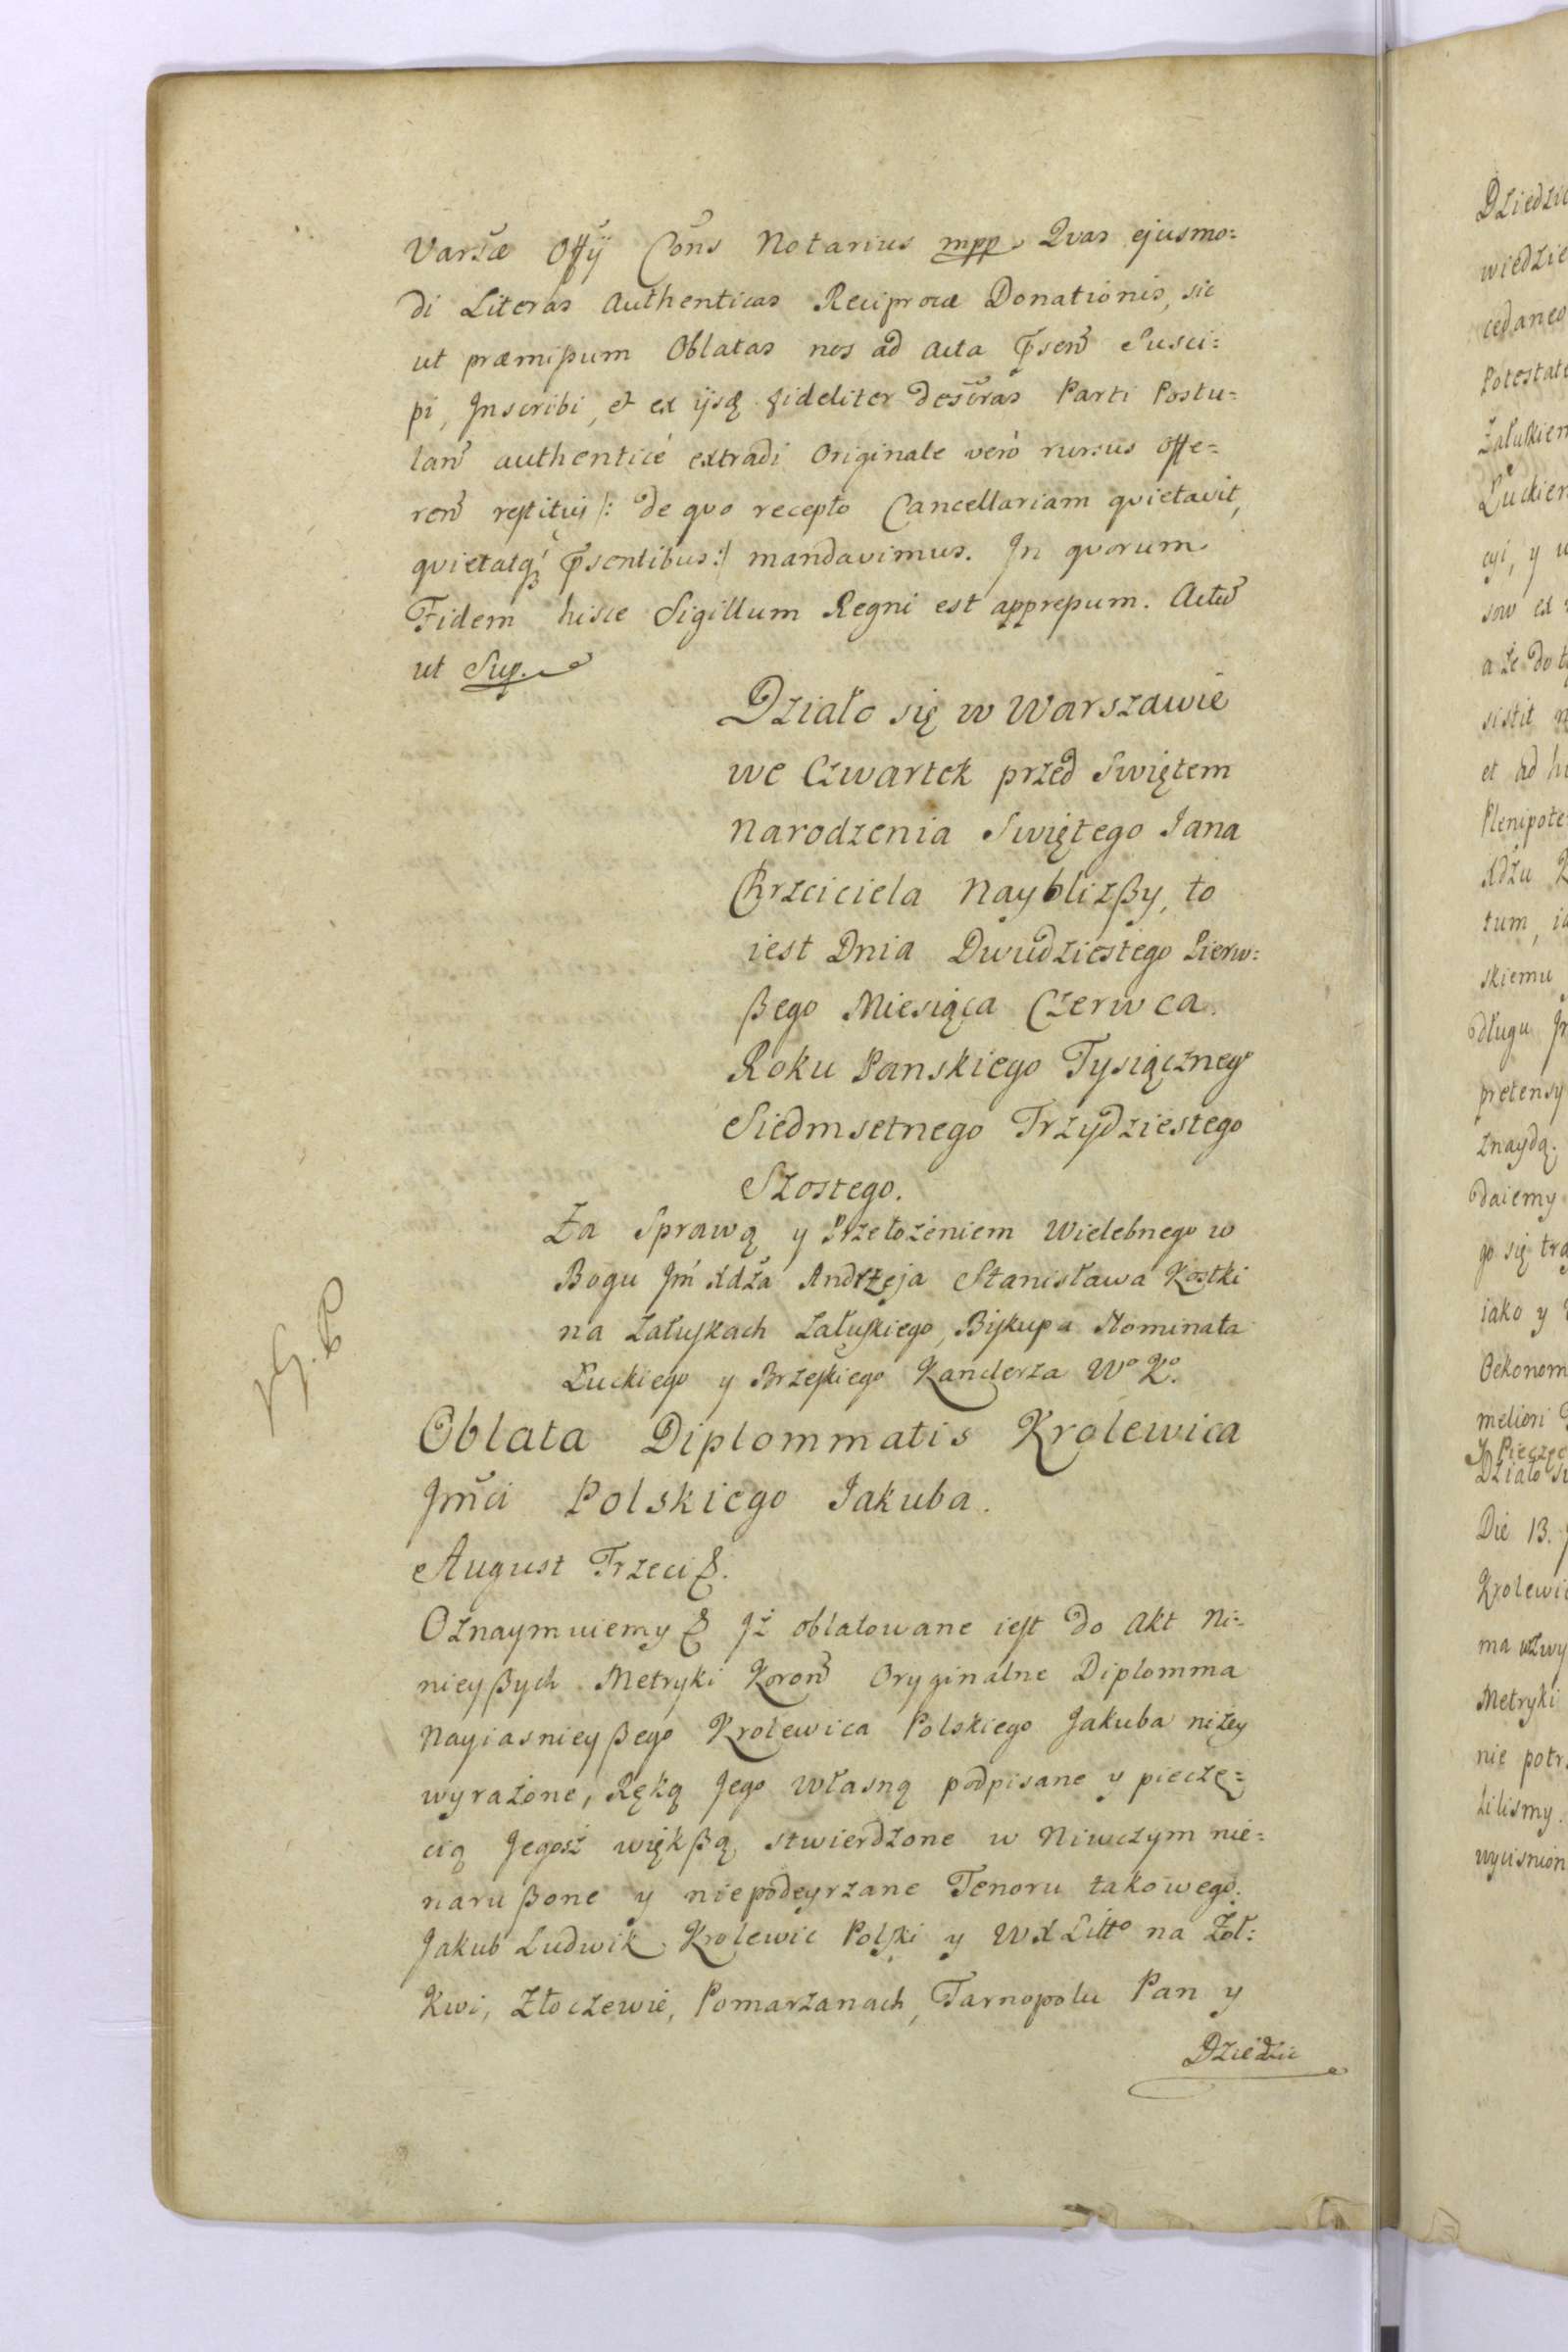 Varsæ Offÿ Cons Notarius mpp. Qvas ejusmo=
di Literas Authenticas Reciprocæ Donationis, sic
ut præmißum Oblatas nos ad Acta Psen Susci=
pi, Inscribi, et ex ijsq fideliter descras Parti Postu=
lan authenticé extradi Originale veró rursus offe=
ren restitui /: de qvo recepto Cancellariam qvietavit,
qvietatq Psentibus :/ mandavimus. In qvorum
Fidem hisce Sigillum Regni est appreßum. Actum
ut Sup.
Działo się w Warszawie
we Czwartek przed Swiętem
Narodzenia Swiętego Jana
Chrzciciela Nayblizßy, to
iest Dnia Dwudziestego Pierw=
ßego Miesiąca Czerwca.
Roku Panskiego Tysiącznego
Siedmsetnego Trzydziestego
Szostego.
Za Sprawą y Przełożeniem Wielebnego w
Bogu Jm Xdza Andrzeja Stanisława Kostki
na Załuskach Załuskiego, Biskupa Nominata
Łuckiego y Brzeskiego Kanclerza Wo Ko.
Oblata Diplommatis Krolewica
Jmci Polskiego Jakuba.
August Trzeci &.
Oznaymuiemy & Jż oblatowane iest do Akt Ni=
nieyßych Metryki Koron Oryginalne Diplomma
Nayiasnieyßego Krolewica Polskiego Jakuba niżey
wyrażone, Ręką Jego Własną podpisane y pieczę=
cią Jegosz więkßą stwierdzone w Niwczym nie=
narußone y niepodeyrzane Tenoru takowego.
Jakub Ludwik Krolewic Polski y WX Litto na Żoł=
kwi, Złoczewie, Pomarzanach, Tarnopolu Pan y
Dziedzic